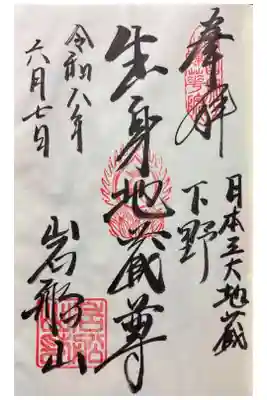 奉拝
日本三大地蔵
下野
生身地蔵尊
岩船山
令和八年
六月七日